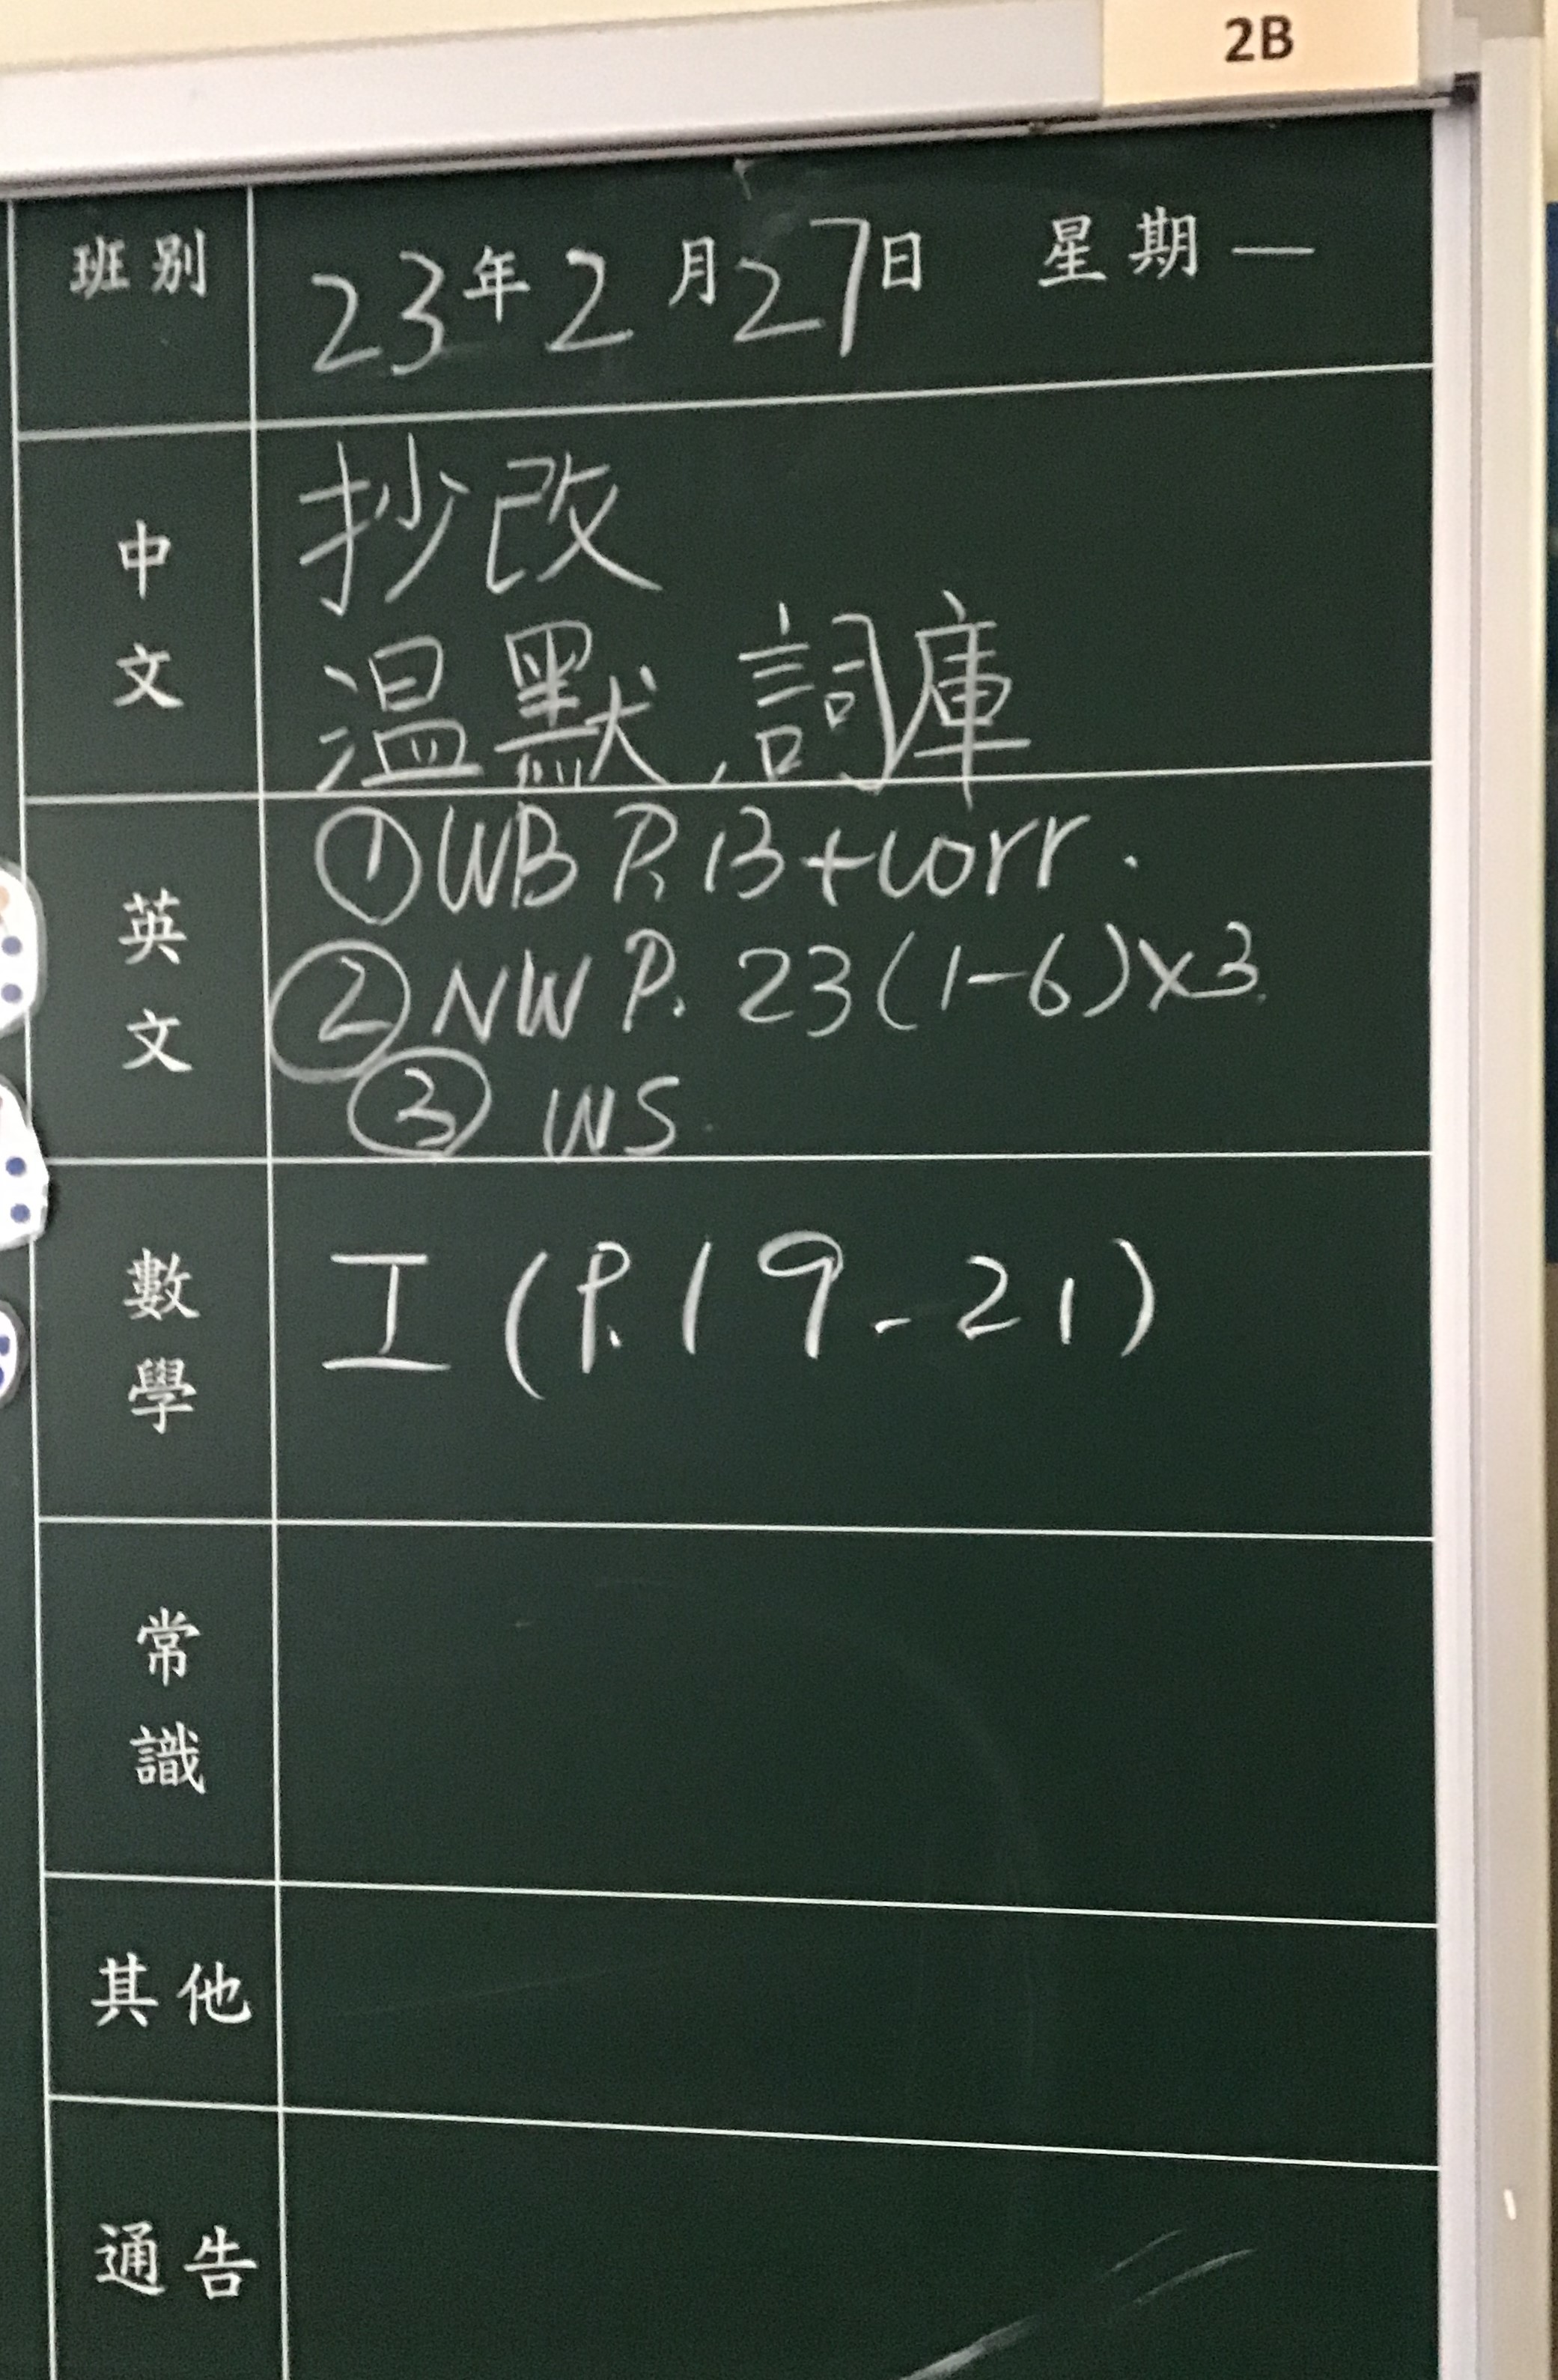 2B
班別 23年2月27日 星期一
中文
抄改
溫默，詞庫
英文
①WB P.13+corr.
②NW P.23(1-6)x3
③ WS
數學
工(P.19-21)
常識
其他
通告